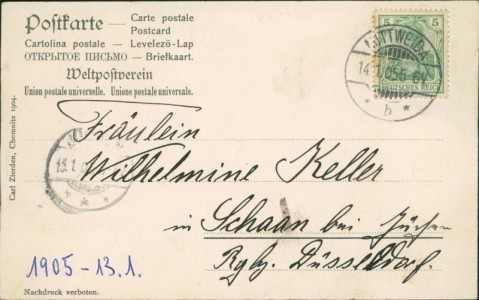 Postkarte — Carte postale
Postcard
Cartolina postale — Levelező-Lap
ОТКРЫТОЕ ПІСЬМО — Briefkaart.
Weltpostverein
Union postale universelle. Unione postale universale.
5 5
DEUTSCHES REICH
MITTWEIDA
* b *
Carl Zierden, Chemnitz 1904.
Fräulein
Wilhelmine Keller
in Schaan bei Jüchen
Rgbz. Düsseldorf.
1905 - 13.1.
Nachdruck verboten.